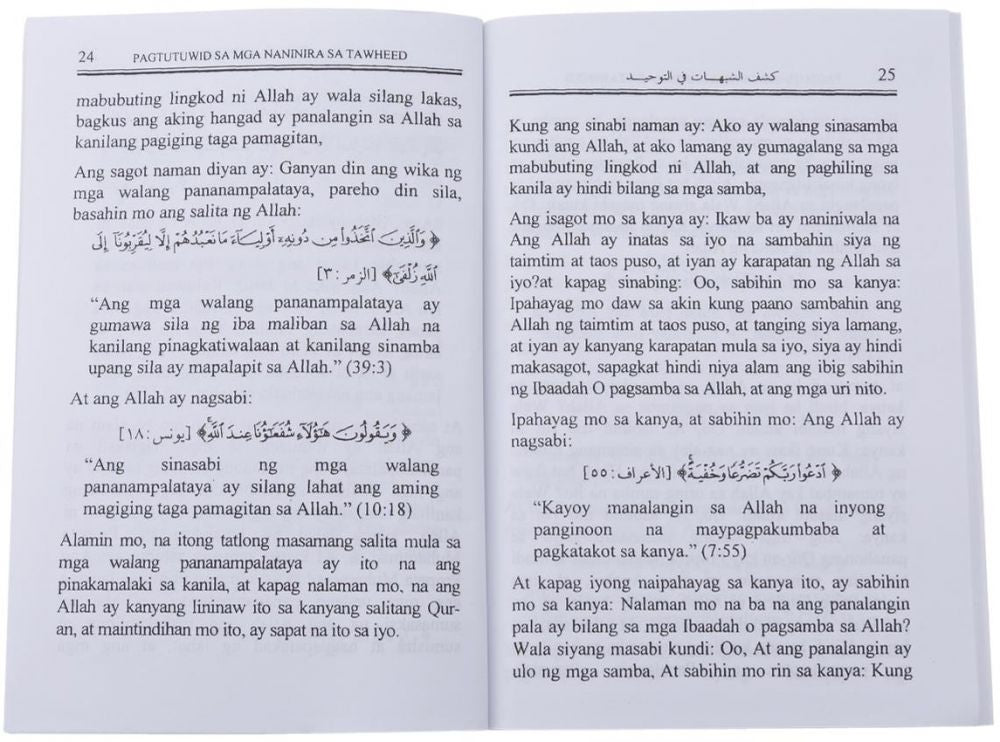 24 PAGTUTUWID SA MGA NANINIRA SA TAWHEED
mabubuting lingkod ni Allah ay wala silang lakas,
bagkus ang aking hangad ay panalangin sa Allah sa
kanilang pagiging taga pamagitan,
Ang sagot naman diyan ay: Ganyan din ang wika ng
mga walang pananampalataya, pareho din sila,
basahin mo ang salita ng Allah:
﴿ وَالَّذِينَ اتَّخَذُوا مِن دُونِهِ أَوْلِيَاءَ مَا نَعْبُدُهُمْ إِلَّا لِيُقَرِّبُونَا إِلَى
اللَّهِ زُلْفَىٰ ﴾ [الزمر: ٣]
“Ang mga walang pananampalataya ay
gumawa sila ng iba maliban sa Allah na
kanilang pinagkatiwalaan at kanilang sinamba
upang sila ay mapalapit sa Allah.” (39:3)
At ang Allah ay nagsabi:
﴿ وَيَقُولُونَ هَٰؤُلَاءِ شُفَعَاؤُنَا عِندَ اللَّهِ ﴾ [يونس: ١٨]
“Ang sinasabi ng mga walang
pananampalataya ay silang lahat ang aming
magiging taga pamagitan sa Allah.” (10:18)
Alamin mo, na itong tatlong masamang salita mula sa
mga walang pananampalataya ay ito na ang
pinakamalaki sa kanila, at kapag nalaman mo, na ang
Allah ay kanyang lininaw ito sa kanyang salitang Qur-
an, at maintindihan mo ito, ay sapat na ito sa iyo.
كشف الشبهات في التوحيد 25
Kung ang sinabi naman ay: Ako ay walang sinasamba
kundi ang Allah, at ako lamang ay gumagalang sa mga
mabubuting lingkod ni Allah, at ang paghiling sa
kanila ay hindi bilang sa mga samba,
Ang isagot mo sa kanya ay: Ikaw ba ay naniniwala na
Ang Allah ay inatas sa iyo na sambahin siya ng
taimtim at taos puso, at iyan ay karapatan ng Allah sa
iyo?at kapag sinabing: Oo, sabihin mo sa kanya:
Ipahayag mo daw sa akin kung paano sambahin ang
Allah ng taimtim at taos puso, at tanging siya lamang,
at iyan ay kanyang karapatan mula sa iyo, siya ay hindi
makasagot, sapagkat hindi niya alam ang ibig sabihin
ng Ibaadah O pagsamba sa Allah, at ang mga uri nito.
Ipahayag mo sa kanya, at sabihin mo: Ang Allah ay
nagsabi:
﴿ ادْعُوا رَبَّكُمْ تَضَرُّعًا وَخُفْيَةً ﴾ [الأعراف: ٥٥]
“Kayoy manalangin sa Allah na inyong
panginoon na maypagpakumbaba at
pagkatakot sa kanya.” (7:55)
At kapag iyong naipahayag sa kanya ito, ay sabihin
mo sa kanya: Nalaman mo na ba na ang panalangin
pala ay bilang sa mga Ibaadah o pagsamba sa Allah?
Wala siyang masabi kundi: Oo, At ang panalangin ay
ulo ng mga samba, At sabihin mo rin sa kanya: Kung